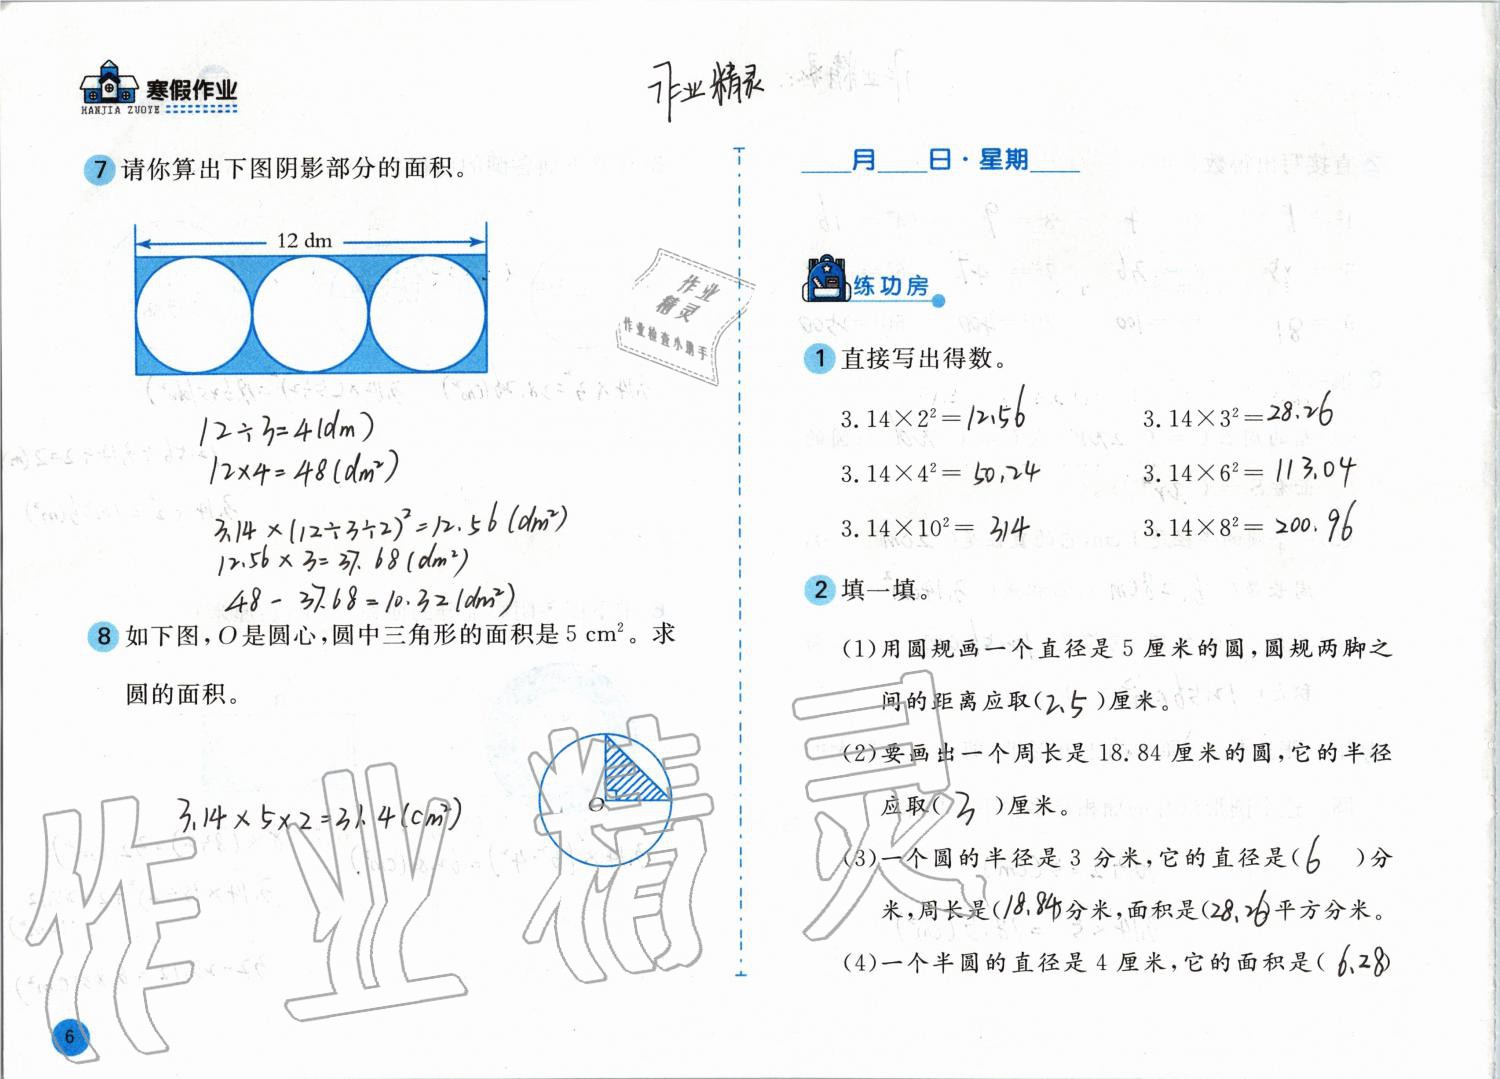 寒假作业
HANJIA ZUOYE
作业精灵
7 请你算出下图阴影部分的面积。
12 dm
12÷3=4(dm)
12×4=48(dm²)
3.14×(12÷3÷2)²=12.56(dm²)
12.56×3=37.68(dm²)
48-37.68=10.32(dm²)
8 如下图,O是圆心,圆中三角形的面积是 5 cm²。求
圆的面积。
O
3.14×5×2=31.4(cm²)
6
作业
精灵
作业检查小助手
月 日·星期
练功房
1 直接写出得数。
3.14×2²=12.56 3.14×3²=28.26
3.14×4²=50.24 3.14×6²=113.04
3.14×10²=314 3.14×8²=200.96
2 填一填。
(1)用圆规画一个直径是 5 厘米的圆,圆规两脚之
间的距离应取(2.5)厘米。
(2)要画出一个周长是 18.84 厘米的圆,它的半径
应取(3)厘米。
(3)一个圆的半径是 3 分米,它的直径是(6)分
米,周长是(18.84)分米,面积是(28.26)平方分米。
(4)一个半圆的直径是 4 厘米,它的面积是(6.28)
作业精灵